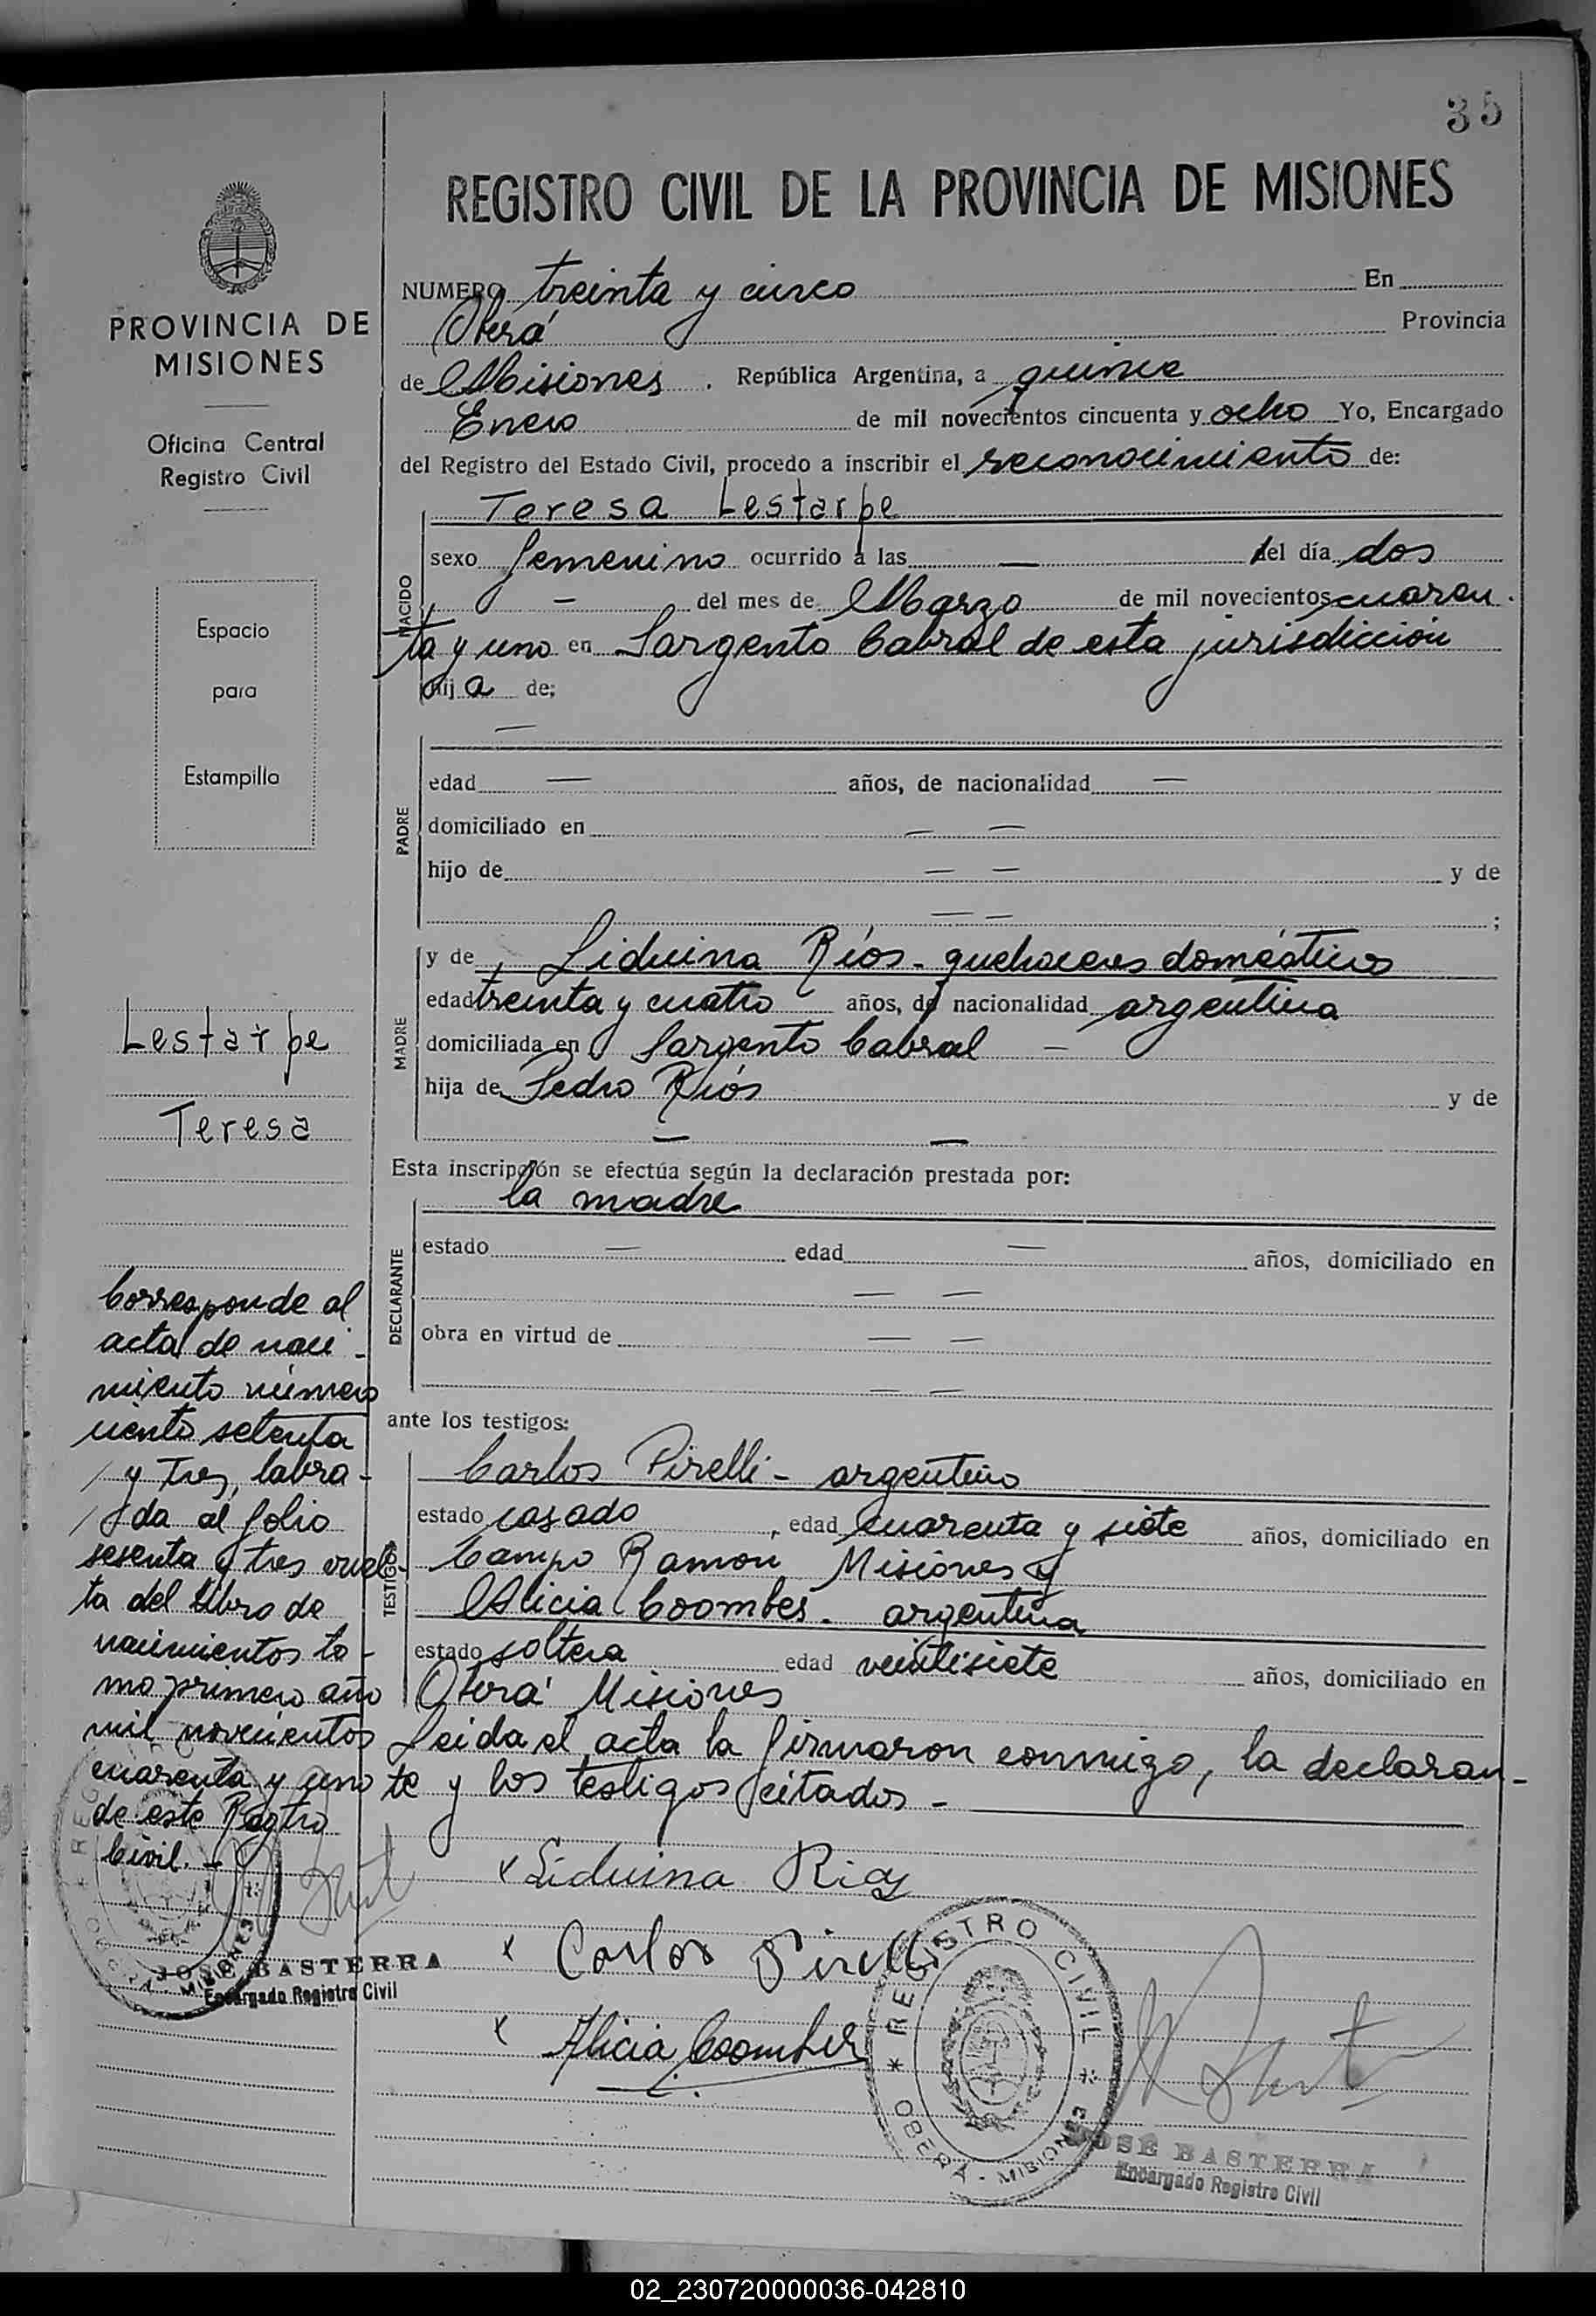 35
REGISTRO CIVIL DE LA PROVINCIA DE MISIONES
PROVINCIA DE
MISIONES
Oficina Central
Registro Civil
Espacio
para
Estampilla
Lestarpe
Teresa
Corresponde al
acta de naci-
miento número
ciento setenta
y tres, labra-
da al folio
sesenta y tres vuel-
ta del libro de
nacimientos to-
mo primero año
mil novecientos
cuarenta y uno
de este Regtro
Civil. -
JOSE BASTERRA
Encargado Registro Civil
NUMERO treinta y cinco En
Oberá Provincia
de Misiones . República Argentina, a quince
Enero de mil novecientos cincuenta y ocho Yo, Encargado
del Registro del Estado Civil, procedo a inscribir el reconocimiento de:
NACIDO
Teresa Lestarpe
sexo femenino ocurrido a las — del día dos
— del mes de Marzo de mil novecientos cuaren-
ta y uno en Sargento Cabral de esta jurisdicción
hija de;
—
PADRE
edad — años, de nacionalidad —
domiciliado en — —
hijo de — — y de
— — ;
MADRE
y de Liduina Ríos - quehaceres domésticos
edad treinta y cuatro años, de nacionalidad argentina
domiciliada en Sargento Cabral —
hija de Pedro Ríos y de
— —
Esta inscripción se efectúa según la declaración prestada por:
la madre
DECLARANTE
estado — edad — años, domiciliado en
— —
obra en virtud de — —
— —
ante los testigos:
TESTIGOS
Carlos Pirelli - argentino
estado casado , edad cuarenta y siete años, domiciliado en
Campo Ramón Misiones y
Alicia Coombes - argentina
estado soltera edad veintisiete años, domiciliado en
Oberá Misiones
Leida el acta la firmaron conmigo, la declaran-
te y los testigos citados -
x Liduina Rios
x Carlos Pirelli
x Alicia Coombes
REGISTRO CIVIL
OBERA - MISIONES
JOSE BASTERRA
Encargado Registro Civil
02_230720000036-042810